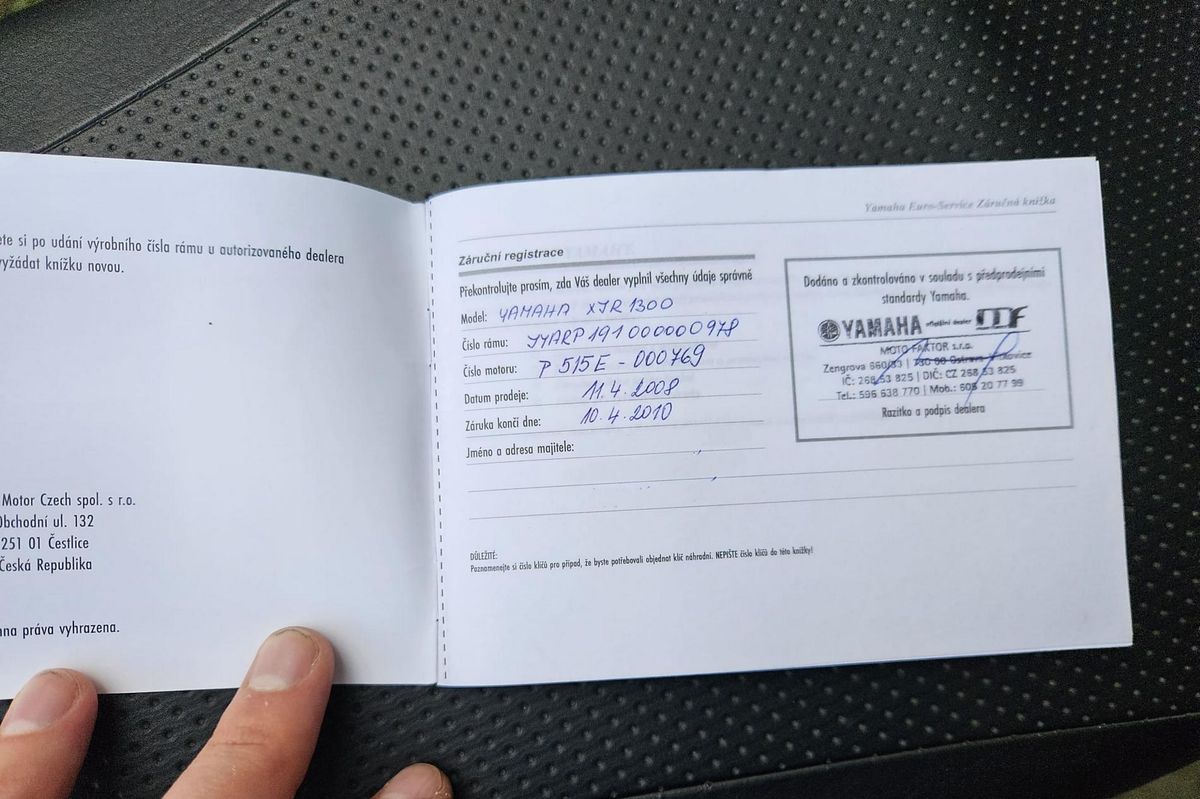 ete si po udání výrobního čísla rámu u autorizovaného dealera
vyžádat knížku novou.
Motor Czech spol. s r.o.
Obchodní ul. 132
251 01 Čestlice
Česká Republika
nna práva vyhrazena.
Yamaha Euro-Service Záruční knížka
Záruční registrace
Překontrolujte prosím, zda Váš dealer vyplnil všechny údaje správně
Model: YAMAHA XJR 1300
Číslo rámu: JYARP191000000978
Číslo motoru: P515E - 000769
Datum prodeje: 11.4.2008
Záruka končí dne: 10.4.2010
Jméno a adresa majitele:
Dodáno a zkontrolováno v souladu s předprodejními
standardy Yamaha.
YAMAHA oficiální dealer MF
MOTO FAKTOR s.r.o.
Zengrova 660/83 | 730 00 Ostrava Vítkovice
IČ: 268 53 825 | DIČ: CZ 268 53 825
Tel.: 596 638 770 | Mob.: 608 20 77 99
Razítko a podpis dealera
DŮLEŽITÉ:
Poznamenejte si číslo klíčů pro případ, že byste potřebovali objednat klíč náhradní. NEPIŠTE číslo klíčů do této knížky!